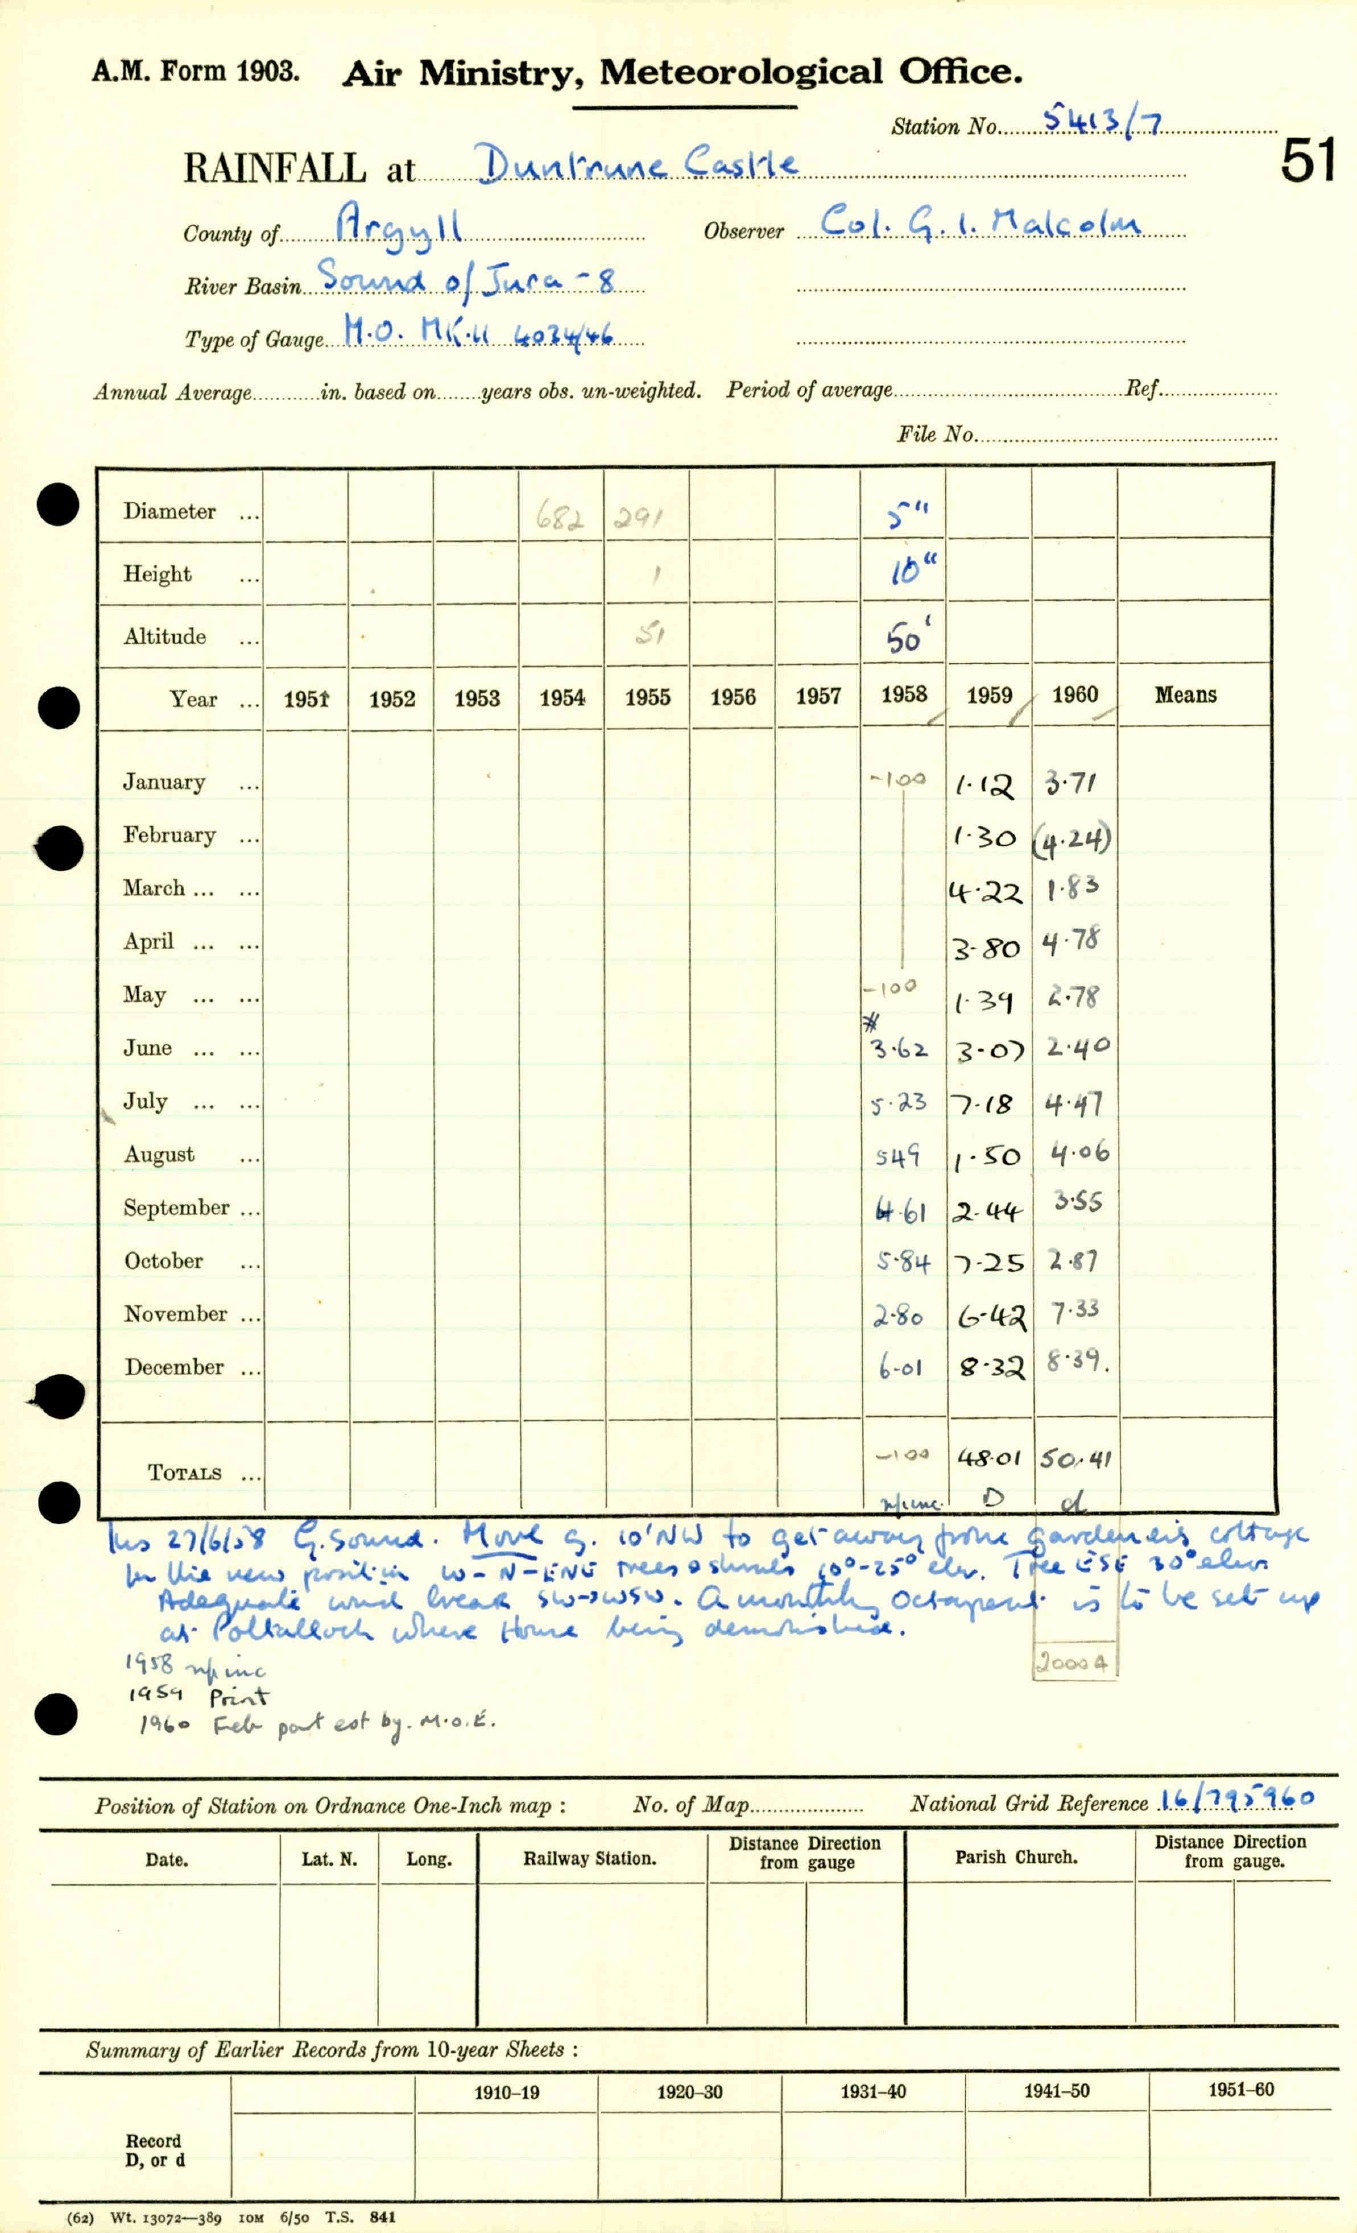 A.M. Form 1903. Air Ministry, Meteorological Office.
Station No. 5413/7
51
RAINFALL at Duntrune Castle
County of Argyll Observer Col. G. I. Malcolm
River Basin Sound of Jura - 8
Type of Gauge M.O. MK II 4034/46
Annual Average in. based on years obs. un-weighted. Period of average Ref.
File No.
Diameter ... 682 291 5"
Height ... 1 10"
Altitude ... 51 50'
Year ... 1951 1952 1953 1954 1955 1956 1957 1958 1959 1960 Means
January ... -100 1.12 3.71
February ... 1.30 (4.24)
March ... ... 4.22 1.83
April ... ... 3.80 4.78
May ... ... -100 1.39 2.78
#
June ... ... 3.62 3.07 2.40
July ... ... 5.23 7.18 4.47
August ... 549 1.50 4.06
September ... 4.61 2.44 3.55
October ... 5.84 7.25 2.87
November ... 2.80 6.42 7.33
December ... 6.01 8.32 8.39.
TOTALS ... -100 48.01 50.41
D d
Ins 27/6/58 G. sound. Move g. 10' NW to get away from gardener's cottage
In the new position W-N-ENE trees & shrubs 10°-25° elev. Tree ESE 30° elev.
Adequate wind break SW-WSW. A monthly Octapent is to be set up
at Poltalloch where House being demolished.
20004
1958 inc
1959 Print
1960 Feb part est by. M.O.E.
Position of Station on Ordnance One-Inch map : No. of Map National Grid Reference 16/795960
Date. Lat. N. Long. Railway Station. Distance from Direction gauge Parish Church. Distance from Direction gauge.
Summary of Earlier Records from 10-year Sheets :
1910–19 1920–30 1931–40 1941–50 1951–60
Record
D, or d
(62) Wt. 13072—389 10M 6/50 T.S. 841